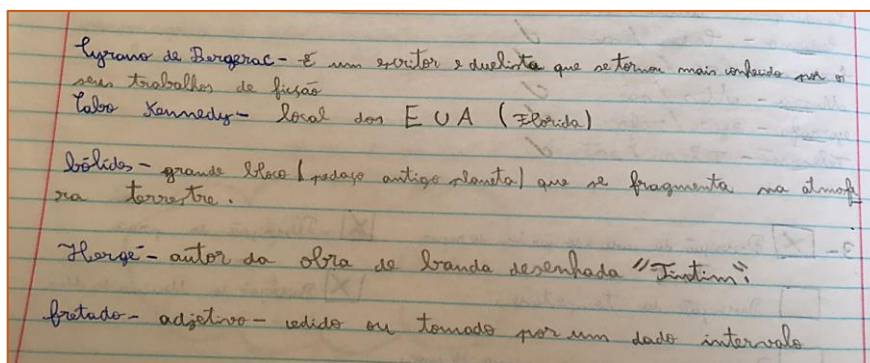 Cyrano de Bergerac - É um escritor e duelista que se tornou mais conhecido por os
seus trabalhos de ficsão
Cabo Kennedy - local dos EUA (Florida)
bólides - grande bloco (pedaço antigo planeta) que se fragmenta na atmosfe
ra terrestre.
Hergé - autor da obra de banda desenhada "Tintim".
fretado - adjetivo - cedido ou tomado por um dado intervalo